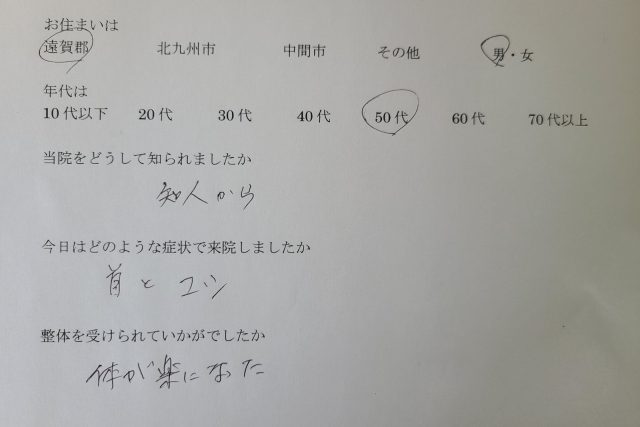 お住まいは
遠賀郡 北九州市 中間市 その他 男・女
年代は
10代以下 20代 30代 40代 50代 60代 70代以上
当院をどうして知られましたか
知人から
今日はどのような症状で来院しましたか
首と コシ
整体を受けられていかがでしたか
体が楽になった